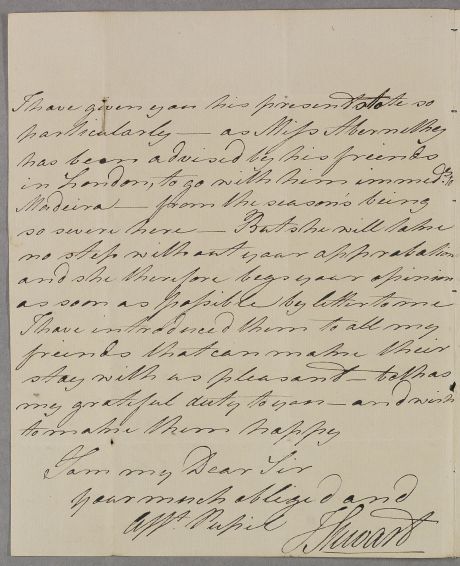 I have given you his present state so
particularly — as Miss Abernethy
has been advised by his friends
in London, to go with him immed:y to
Madeira — from the season's being
so severe here — But she will take
no step without your approbation
and she therefore begs your opinion
as soon as possible by letter to me
I have introduced them to all my
friends that can make their
stay with us pleasant — both as
my grateful duty to you — and wish
to make them happy
I am my Dear Sir
your much obliged and
Afft. Pupil
J Stewart